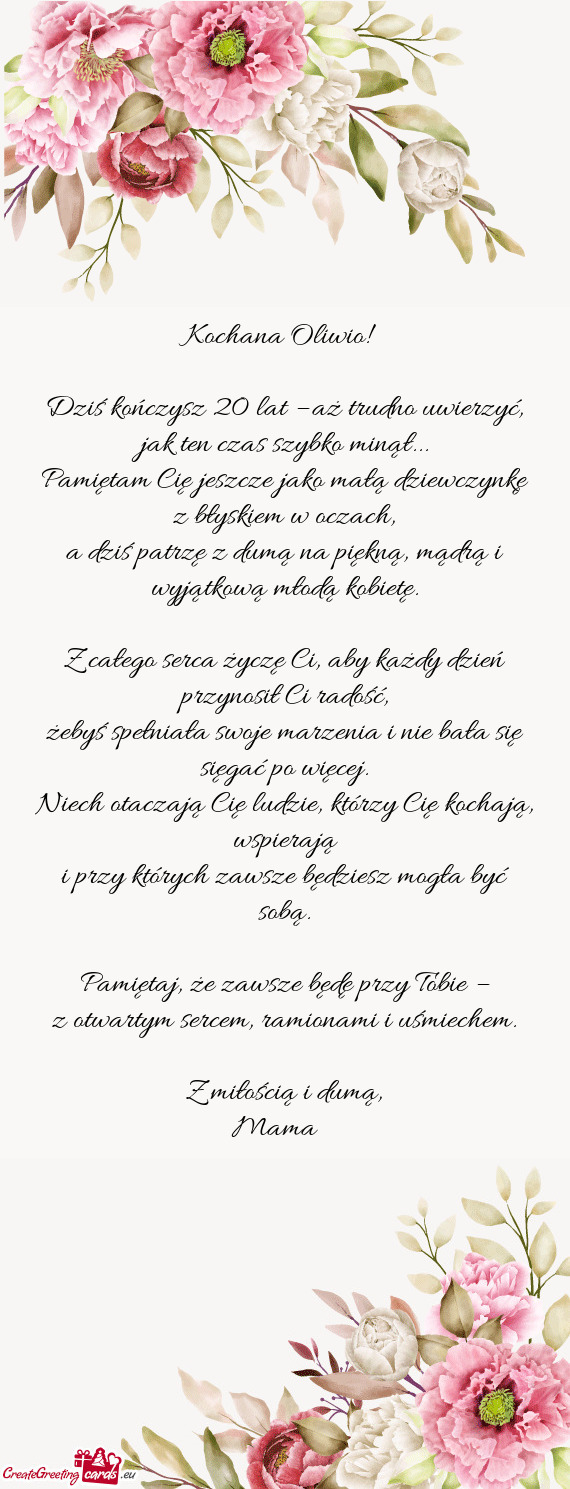 Kochana Oliwio!
Dziś kończysz 20 lat – aż trudno uwierzyć,
jak ten czas szybko minął...
Pamiętam Cię jeszcze jako małą dziewczynkę
z błyskiem w oczach,
a dziś patrzę z dumą na piękną, mądrą i
wyjątkową młodą kobietę.
Z całego serca życzę Ci, aby każdy dzień
przynosił Ci radość,
żebyś spełniała swoje marzenia i nie bała się
sięgać po więcej.
Niech otaczają Cię ludzie, którzy Cię kochają,
wspierają
i przy których zawsze będziesz mogła być
sobą.
Pamiętaj, że zawsze będę przy Tobie –
z otwartym sercem, ramionami i uśmiechem.
Z miłością i dumą,
Mama
CreateGreetingcards.eu